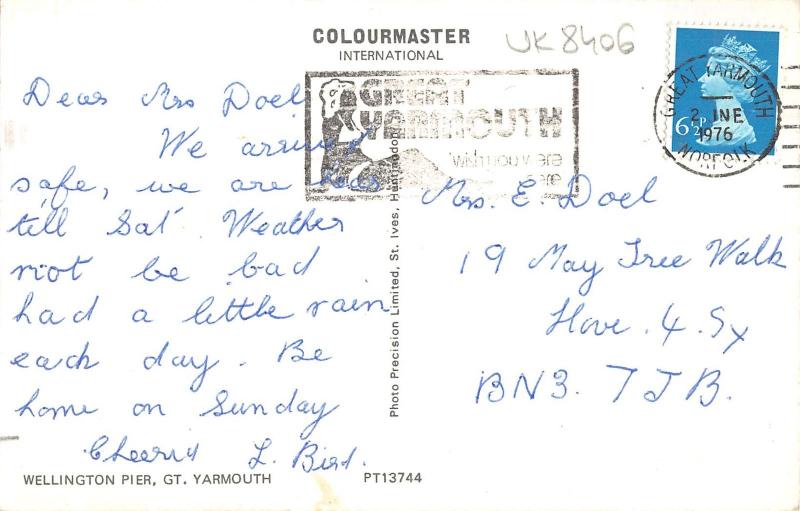 COLOURMASTER
INTERNATIONAL
UK8406
Dear Mrs Doel
We arrived
safe, we are here
till Sat Weather
not be bad
had a little rain
each day. Be
home on Sunday
Cheerio L. Bird.
WELLINGTON PIER, GT. YARMOUTH
PT13744
Photo Precision Limited, St. Ives, Huntingdon
GREAT
YARMOUTH
Wish you were
here
GREAT YARMOUTH
2 JNE
1976
NORFOLK
6½P
Mrs. E. Doel
19 May Tree Walk
Hove. 4. Sx
BN3. 7JB.